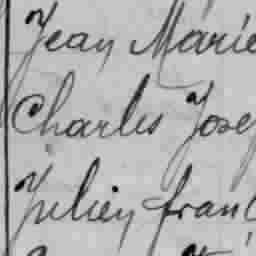 Jean Marie
Charles Jose
Julien fran